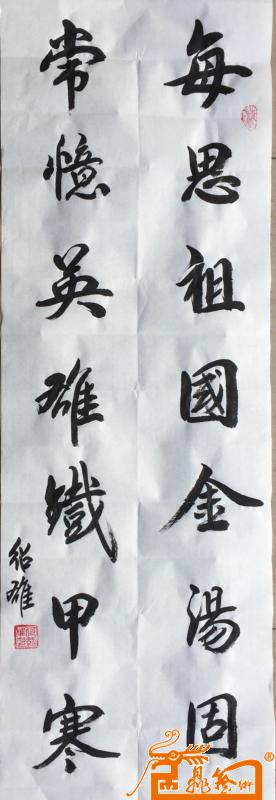 每思祖國金湯固
常憶英雄鐵甲寒
紹雄